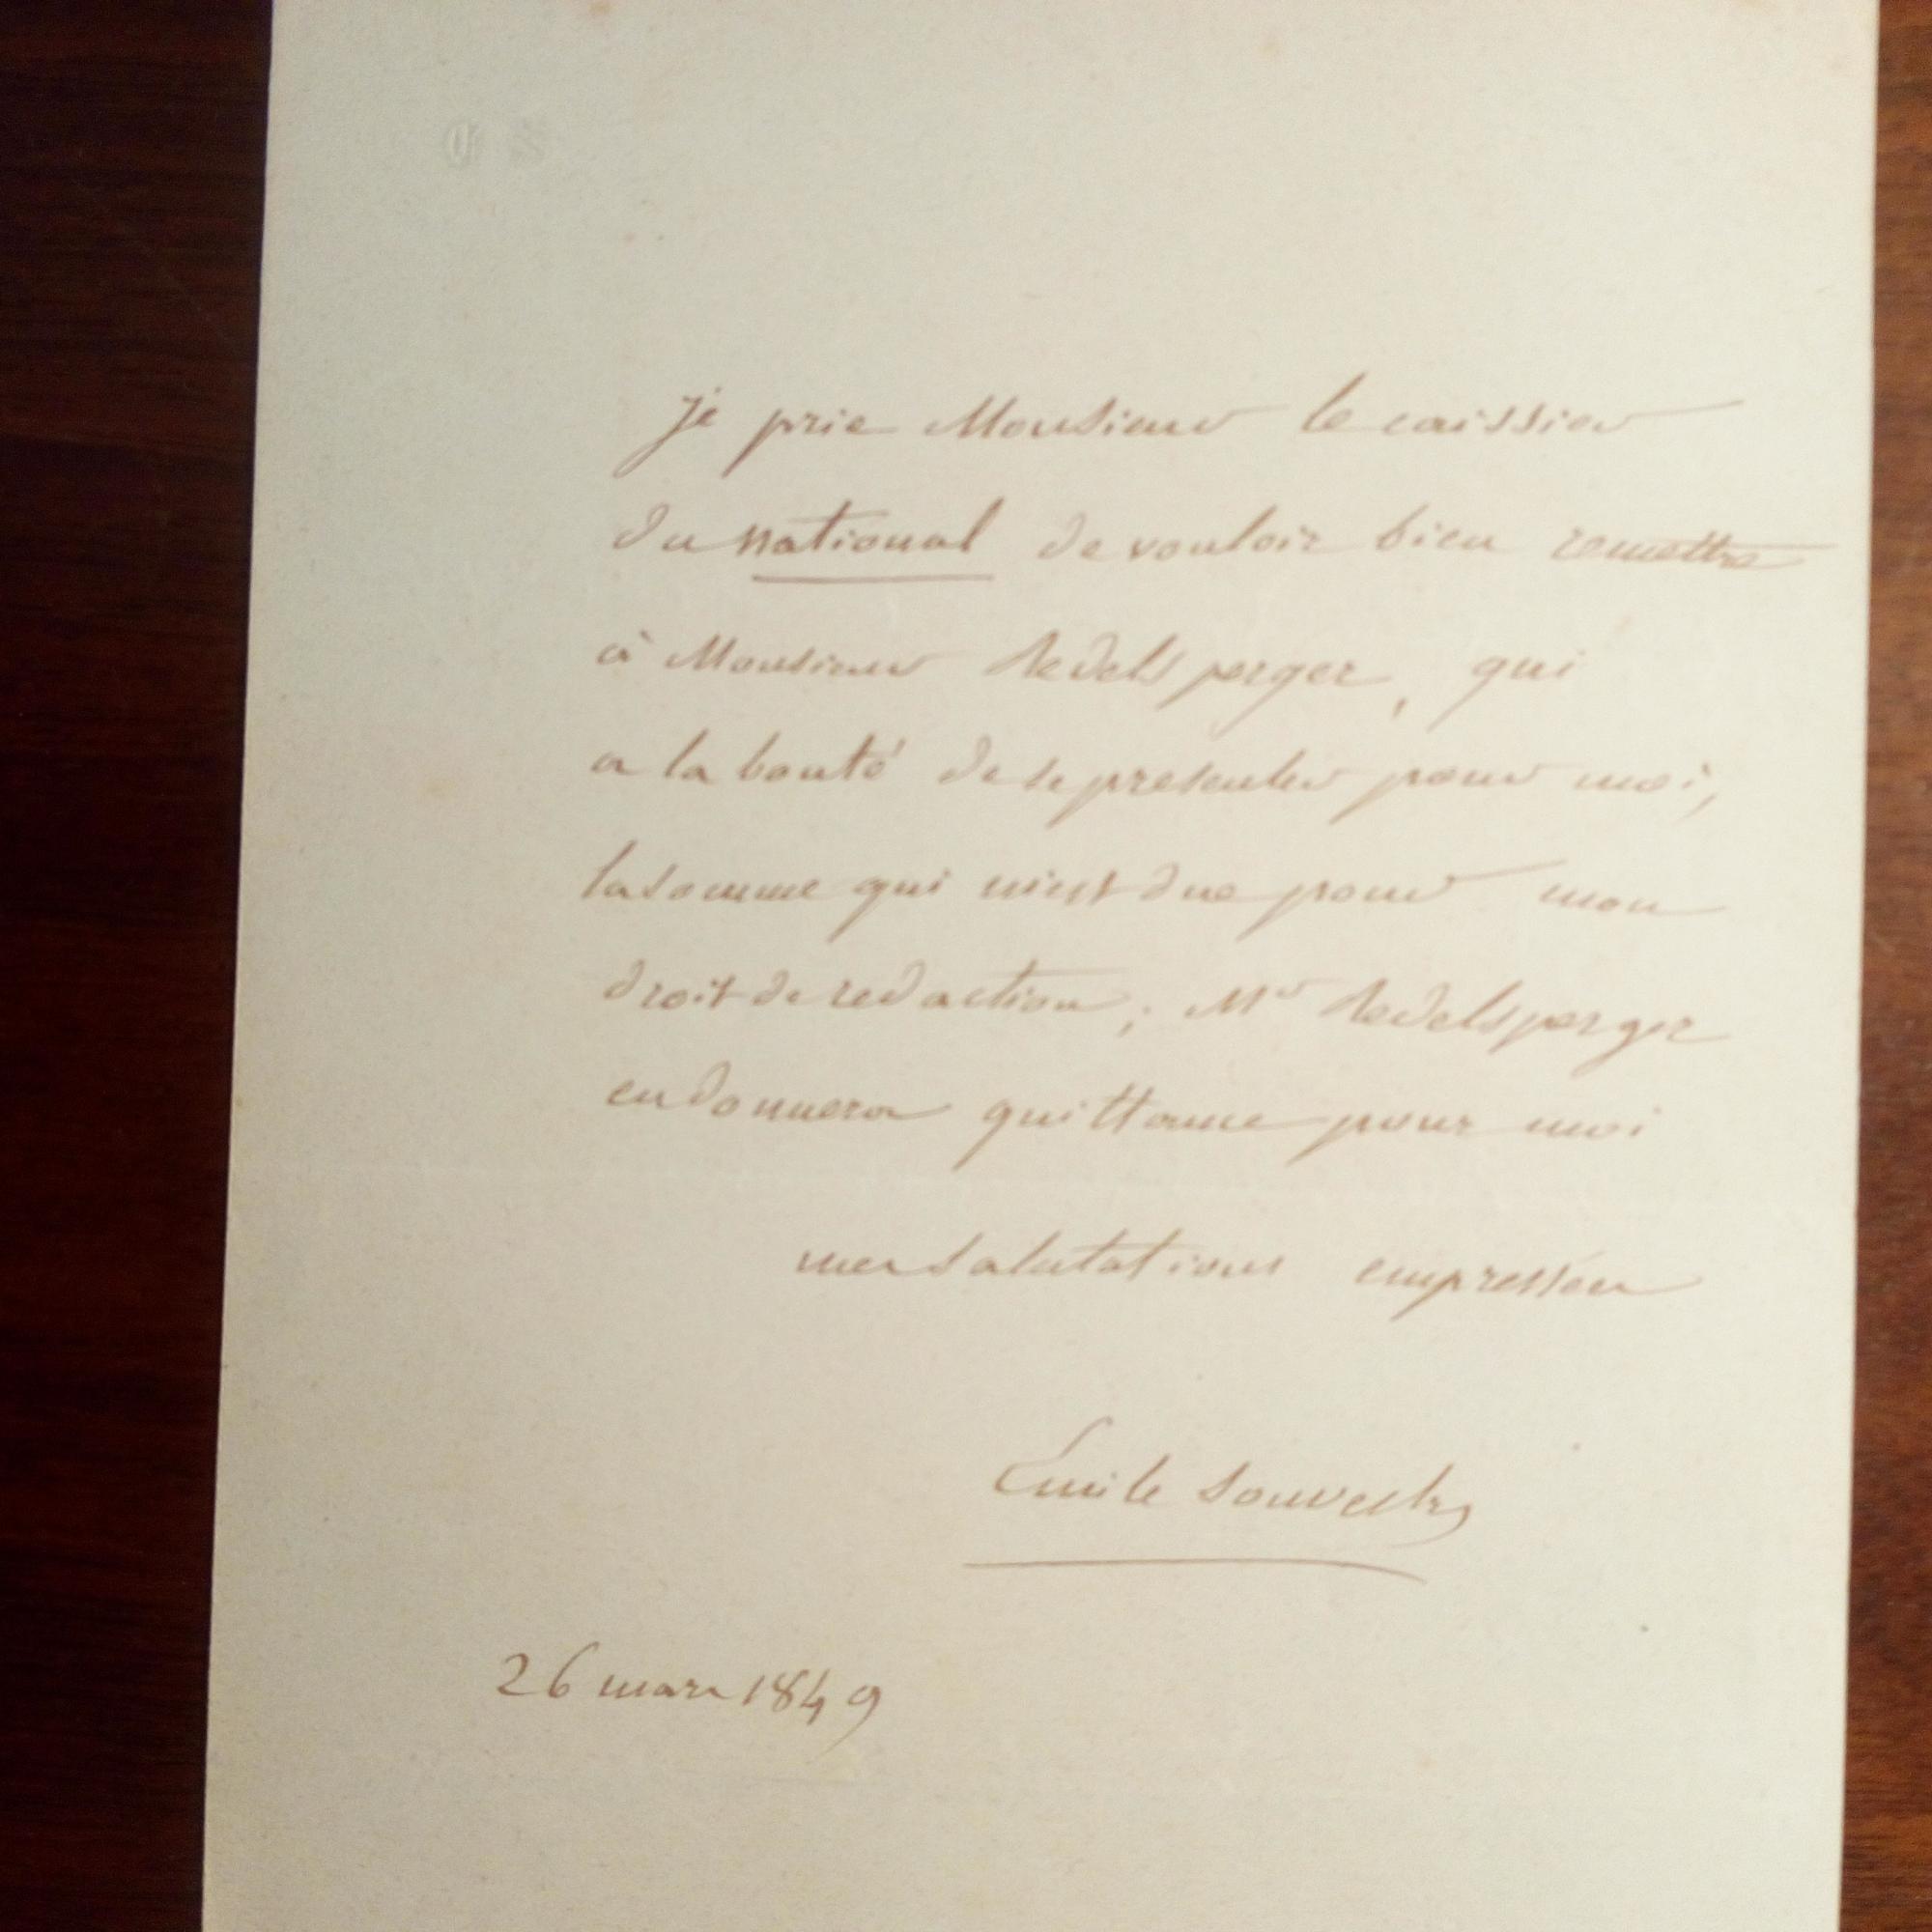 je prie Monsieur le caissier
du national de vouloir bien remettre
à Monsieur Redelsperger, qui
a la bonté de se presenter pour moi,
la somme qui m'est due pour mon
droit de redaction; Mr Redelsperger
en donnera quittance pour moi
mes salutations empressées
Émile Souvestre
26 mars 1849